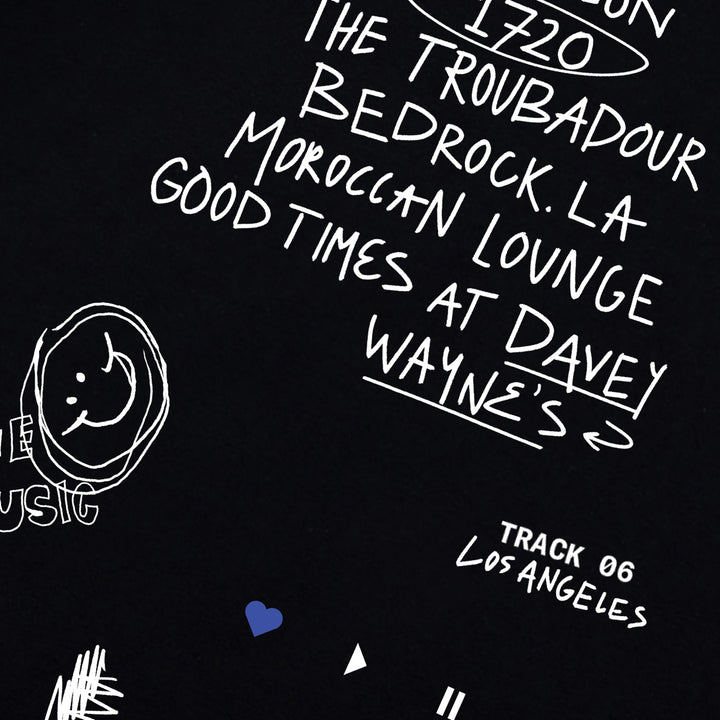 1720
THE TROUBADOUR
BEDROCK. LA
MOROCCAN LOUNGE
GOOD TIMES AT DAVEY
WAYNE'S
TRACK 06
LOS ANGELES